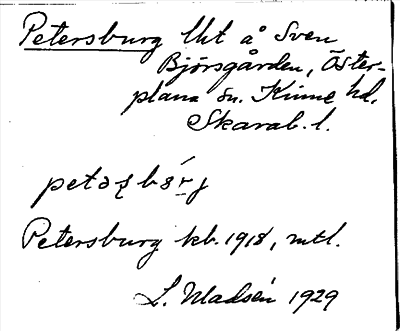 Petersburg lht å Sven
Björsgården, Öster-
plana sn. Kinne hd.
Skarab. l.
petəʂbɞ́rj
Petersburg kb. 1918, mtl.
L. Madsén 1929